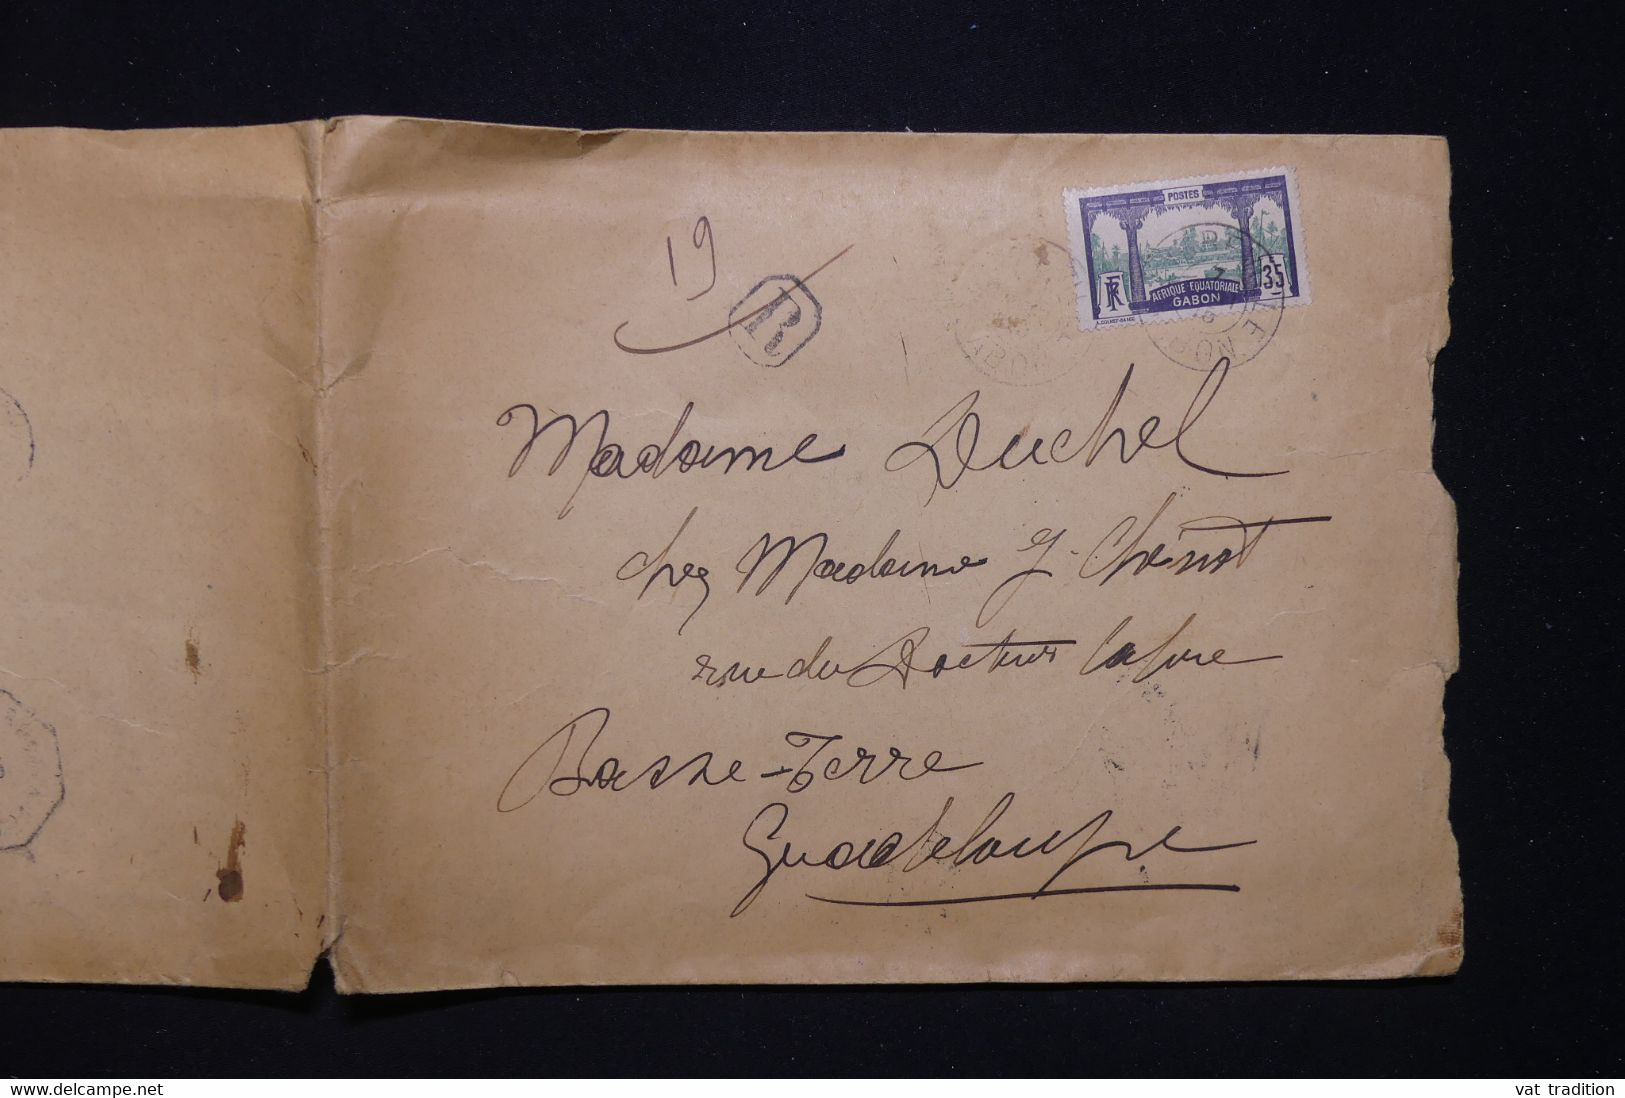 19
R
POSTES
RF
35
AFRIQUE EQUATORIALE
GABON
Madame Duchel
chez Madame J. Chenot
rue du Docteur
Basse-Terre
Guadeloupe
www.delcampe.net
vat tradition